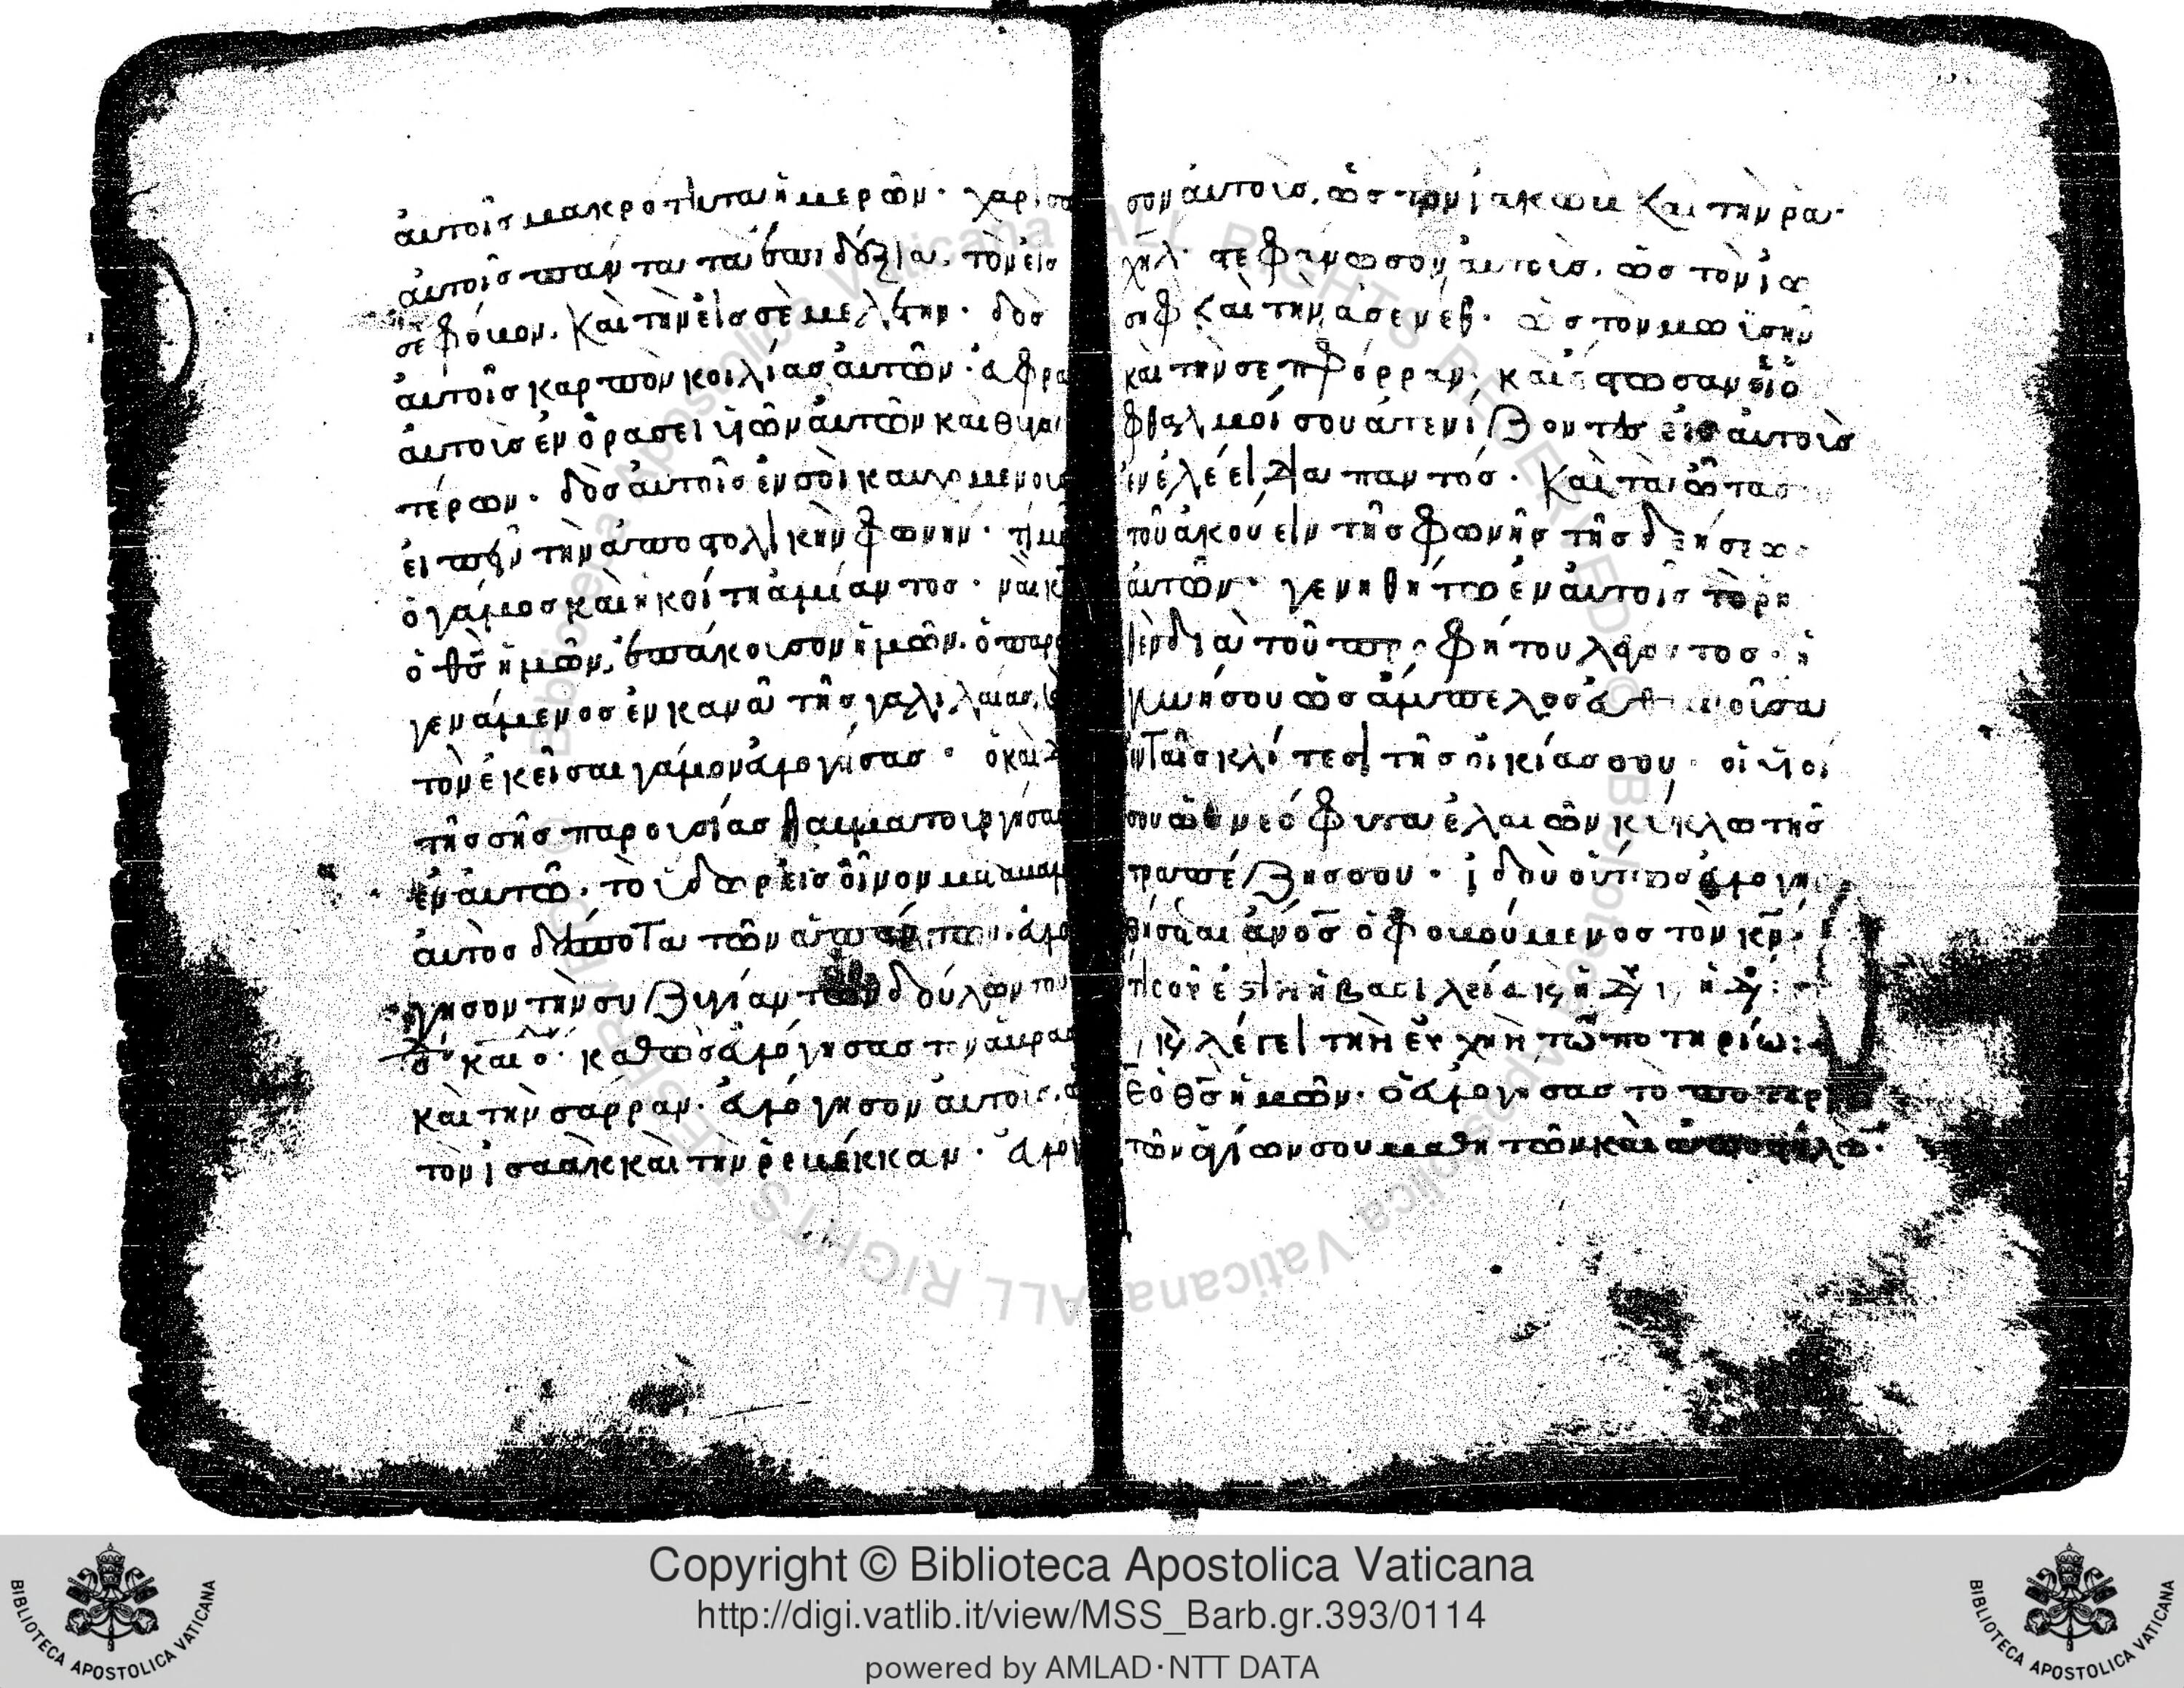 αὐτοῖς μακρότητα ἡμερῶν · χάρισαι
αὐτοῖς πάντα τὰ ἐπαινδόξια, τὸν εἰς
σὲ φόβον, καὶ τὴν εἰς σὲ μελέτην · δὸς
αὐτοῖς καρπὸν κοιλίας αὐτῶν · εὐφρα
αὐτοὺς ἐν ὁράσει υἱῶν αὐτῶν καὶ θυγα
τέρων · δὸς αὐτοῖς ἐν σοὶ καυχωμένοις
εἰπεῖν τὴν ἀποστολικὴν φωνήν · τίμι
ὁ γάμος καὶ ἡ κοίτη ἀμίαντος · ναὶ κε
ὁ θς ἡμῶν, ἐπάκουσον ἡμῶν, ὁ παρα
γενάμενος ἐν κανᾶ τῆς γαλιλαίας,
τὸν ἐκεῖσαι γάμον εὐλογήσας · ὁ καὶ
τῆς σῆς παρουσίας θαυματουργήσας
ἐν αὐτῷ · τὸ ὕδωρ εἰς οἶνον
αὐτὸς δέσποτα τῶν ἁπάντων · εὐλό
γησον τὴν συζυγίαν τῶν δούλων του
καθὼς εὐλόγησας τὸν ἀβραὰμ
καὶ τὴν σάρραν · εὐλόγησον αὐτοὺς, ὡς
τὸν ἰσαὰκ καὶ τὴν ῥεβέκκαν · εὐλόγη
σον αὐτοὺς, ὡς τὸν ἰακὼβ καὶ τὴν ῥα
χήλ · στεφάνωσον αὐτοὺς, ὡς τὸν ἰω
σὴφ καὶ τὴν ἀσενέθ · ὡς τὸν μωϊσῆν
καὶ τὴν σεπφόρραν · καὶ ἔστωσαν οἱ ὀ
φθαλμοί σου ἀτενίζοντες εἰς αὐτοὺς
ἐν ἐλέει διαπαντός · καὶ τὰ ὦτα σου
τοῦ ἀκούειν τῆς φωνῆς τῆς δεήσεως
αὐτῶν · γενηθήτω ἐν αὐτοῖς τὸ ῥη
θὲν διὰ τοῦ προφήτου λέγοντος · ἡ
γυνή σου ὡς ἄμπελος εὐθηνοῦσα
ἐν ταῖς κλίτεσι τῆς οἰκίας σου · οἱ υἱοί
σου ὡς νεόφυτα ἐλαιῶν κύκλῳ τῆς
τραπέζης σου · ἰδοὺ οὕτως εὐλογη
θήσεται ἀνος ὁ φοβούμενος τὸν κν ·
ὅτι σοῦ ἐστιν ἡ βασιλεία κ ἡ δύ, κ ἡ δό :
κ λέγει τὴν εὐχὴν τῷ ποτηρίῳ :
ὁ θς ἡμῶν · ὁ εὐλογήσας τὸ ποτήρ
τῶν ἁγίων σου μαθητῶν καὶ ἀποστόλων ·
Copyright © Biblioteca Apostolica Vaticana
http://digi.vatlib.it/view/MSS_Barb.gr.393/0114
powered by AMLAD·NTT DATA
BIBLIOTECA APOSTOLICA VATICANA
BIBLIOTECA APOSTOLICA VATICANA